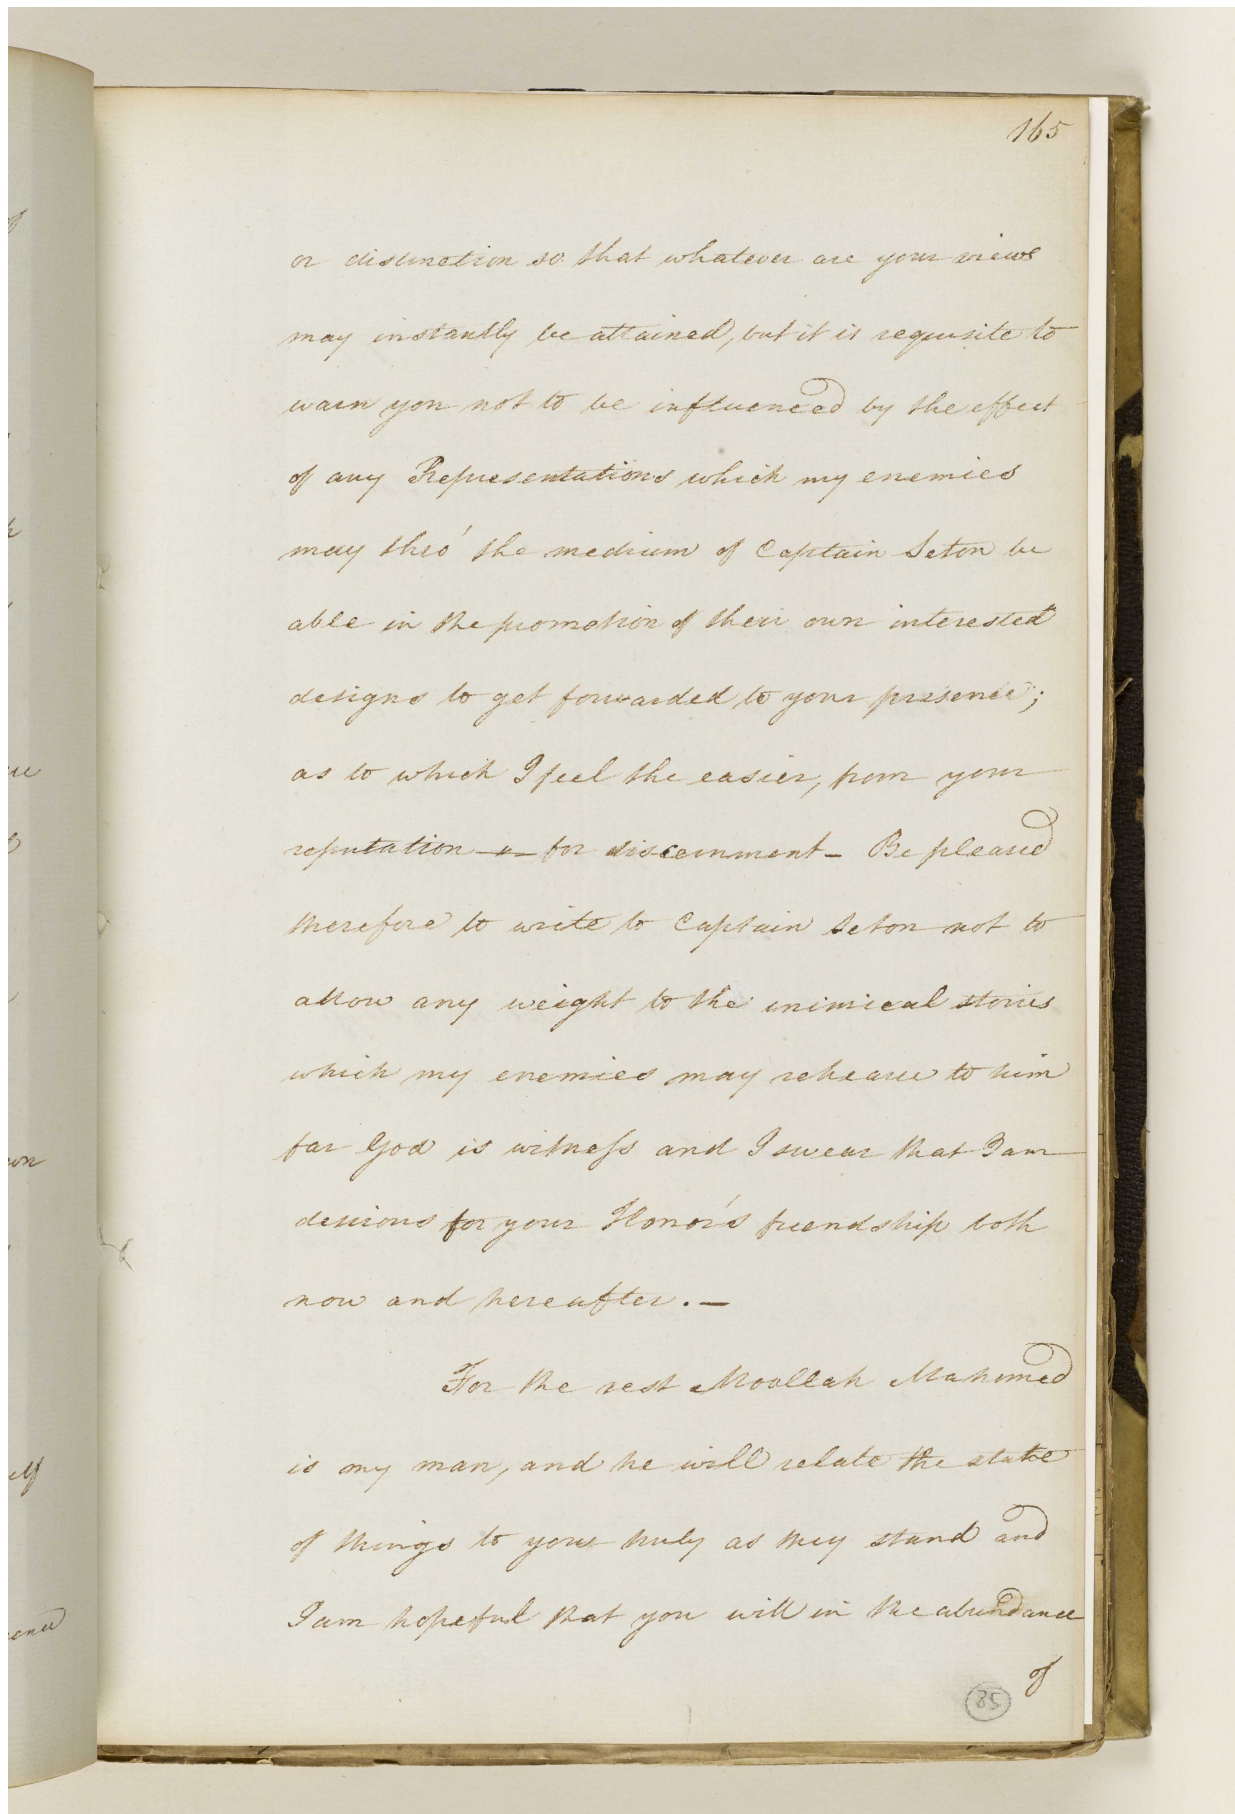 165
or distinction so that whatever are your views
may instantly be attained, but it is requisite to
warn you not to be influenced by the effect
of any Representations which my enemies
may thro' the medium of Captain Seton be
able in the promotion of their own interested
designs to get forwarded to your presence;
as to which I feel the easier, from your
reputation for discernment – Be pleased
therefore to write to Captain Seton not to
allow any weight to the inimical stories
which my enemies may rehearse to him
for God is witness and I swear that I am
desirous for your Honor's friendship both
now and hereafter. –
For the rest Moollah Mahomed
is my man, and he will relate the state
of things to your truly as they stand and
I am hopeful that you will in the abundance
of
85